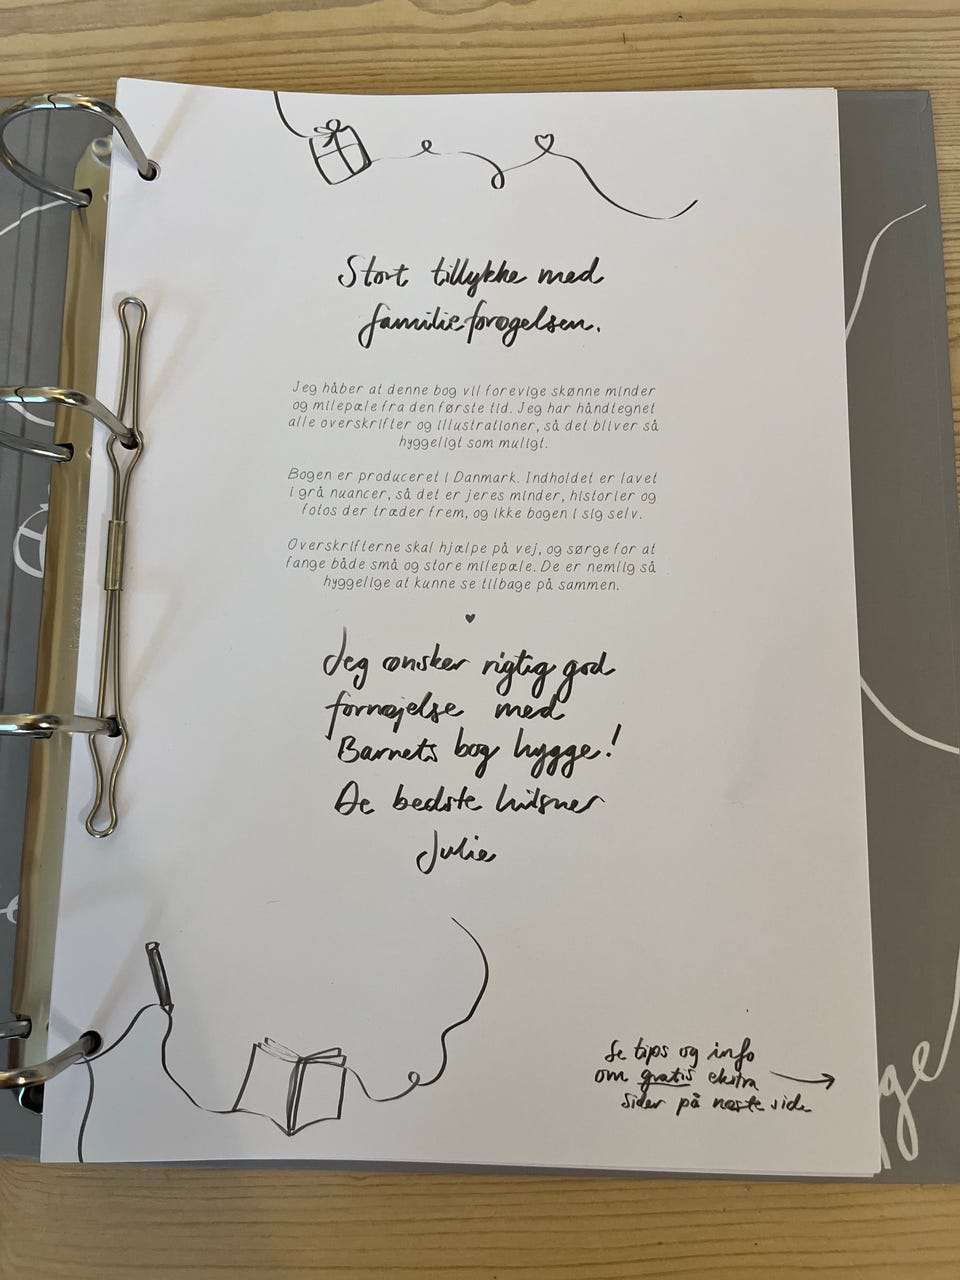 Stort tillykke med
familieforøgelsen.
Jeg håber at denne bog vil forevige skønne minder
og milepæle fra den første tid. Jeg har håndtegnet
alle overskrifter og illustrationer, så det bliver så
hyggeligt som muligt.
Bogen er produceret i Danmark. Indholdet er lavet
i grå nuancer, så det er jeres minder, historier og
fotos der træder frem, og ikke bogen i sig selv.
Overskrifterne skal hjælpe på vej, og sørge for at
fange både små og store milepæle. De er nemlig så
hyggelige at kunne se tilbage på sammen.
Jeg ønsker rigtig god
fornøjelse med
Barnets bog hygge!
De bedste hilsner
Julie
Se tips og info
om gratis ekstra
sider på næste side